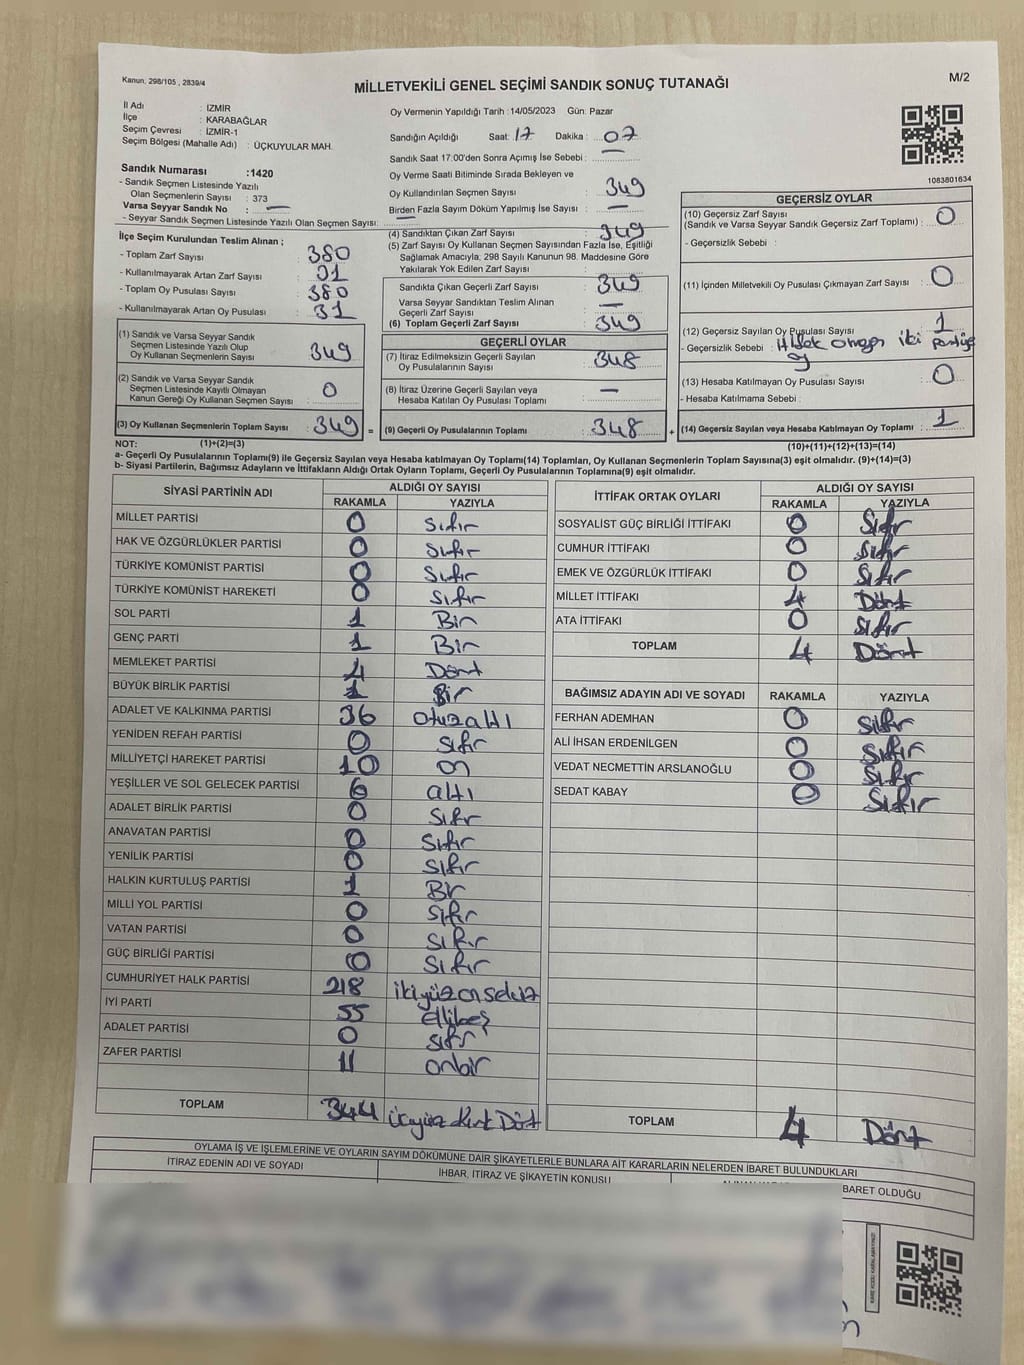 Kanun: 298/105 , 2839/4
MİLLETVEKİLİ GENEL SEÇİMİ SANDIK SONUÇ TUTANAĞI
M/2
İl Adı : İZMİR
İlçe : KARABAĞLAR
Seçim Çevresi : İZMİR-1
Seçim Bölgesi (Mahalle Adı) : ÜÇKUYULAR MAH.
Sandık Numarası :1420
- Sandık Seçmen Listesinde Yazılı
Olan Seçmenlerin Sayısı : 373
Varsa Seyyar Sandık No : —
- Seyyar Sandık Seçmen Listesinde Yazılı Olan Seçmen Sayısı:
İlçe Seçim Kurulundan Teslim Alınan ;
- Toplam Zarf Sayısı : 380
- Kullanılmayarak Artan Zarf Sayısı : 31
- Toplam Oy Pusulası Sayısı : 380
- Kullanılmayarak Artan Oy Pusulası : 31
(1) Sandık ve Varsa Seyyar Sandık
Seçmen Listesinde Yazılı Olup
Oy Kullanan Seçmenlerin Sayısı : 349
(2) Sandık ve Varsa Seyyar Sandık
Seçmen Listesinde Kayıtlı Olmayan
Kanun Gereği Oy Kullanan Seçmen Sayısı : 0
(3) Oy Kullanan Seçmenlerin Toplam Sayısı : 349 =
Oy Vermenin Yapıldığı Tarih : 14/05/2023 Gün: Pazar
Sandığın Açıldığı Saat: 17 Dakika : 07
Sandık Saat 17:00'den Sonra Açımış İse Sebebi : —
Oy Verme Saati Bitiminde Sırada Bekleyen ve
Oy Kullandırılan Seçmen Sayısı : 349
Birden Fazla Sayım Döküm Yapılmış İse Sayısı : —
(4) Sandıktan Çıkan Zarf Sayısı : 349
(5) Zarf Sayısı Oy Kullanan Seçmen Sayısından Fazla İse, Eşitliği
Sağlamak Amacıyla, 298 Sayılı Kanunun 98. Maddesine Göre
Yakılarak Yok Edilen Zarf Sayısı :
Sandıkta Çıkan Geçerli Zarf Sayısı : 349
Varsa Seyyar Sandıktan Teslim Alınan
Geçerli Zarf Sayısı : —
(6) Toplam Geçerli Zarf Sayısı : 349
GEÇERLİ OYLAR
(7) İtiraz Edilmeksizin Geçerli Sayılan
Oy Pusulalarının Sayısı : 348
(8) İtiraz Üzerine Geçerli Sayılan veya
Hesaba Katılan Oy Pusulası Toplamı : —
(9) Geçerli Oy Pusulalarının Toplamı : 348 +
1083801634
GEÇERSİZ OYLAR
(10) Geçersiz Zarf Sayısı
(Sandık ve Varsa Seyyar Sandık Geçersiz Zarf Toplamı) : 0
- Geçersizlik Sebebi :
(11) İçinden Milletvekili Oy Pusulası Çıkmayan Zarf Sayısı : 0
(12) Geçersiz Sayılan Oy Pusulası Sayısı : 1
- Geçersizlik Sebebi : iki partiye
oy
(13) Hesaba Katılmayan Oy Pusulası Sayısı : 0
- Hesaba Katılmama Sebebi :
(14) Geçersiz Sayılan veya Hesaba Katılmayan Oy Toplamı : 1
NOT: (1)+(2)=(3) (10)+(11)+(12)+(13)=(14)
a- Geçerli Oy Pusulalarının Toplamı(9) ile Geçersiz Sayılan veya Hesaba katılmayan Oy Toplamı(14) Toplamları, Oy Kullanan Seçmenlerin Toplam Sayısına(3) eşit olmalıdır. (9)+(14)=(3)
b- Siyasi Partilerin, Bağımsız Adayların ve İttifakların Aldığı Ortak Oyların Toplamı, Geçerli Oy Pusulalarının Toplamına(9) eşit olmalıdır.
SİYASİ PARTİNİN ADI ALDIĞI OY SAYISI
RAKAMLA YAZIYLA
MİLLET PARTİSİ 0 Sıfır
HAK VE ÖZGÜRLÜKLER PARTİSİ 0 Sıfır
TÜRKİYE KOMÜNİST PARTİSİ 0 Sıfır
TÜRKİYE KOMÜNİST HAREKETİ 0 Sıfır
SOL PARTİ 1 Bir
GENÇ PARTİ 1 Bir
MEMLEKET PARTİSİ 4 Dört
BÜYÜK BİRLİK PARTİSİ 1 Bir
ADALET VE KALKINMA PARTİSİ 36 otuzaltı
YENİDEN REFAH PARTİSİ 0 Sıfır
MİLLİYETÇİ HAREKET PARTİSİ 10 on
YEŞİLLER VE SOL GELECEK PARTİSİ 6 altı
ADALET BİRLİK PARTİSİ 0 Sıfır
ANAVATAN PARTİSİ 0 Sıfır
YENİLİK PARTİSİ 0 Sıfır
HALKIN KURTULUŞ PARTİSİ 1 Bir
MİLLİ YOL PARTİSİ 0 Sıfır
VATAN PARTİSİ 0 Sıfır
GÜÇ BİRLİĞİ PARTİSİ 0 Sıfır
CUMHURİYET HALK PARTİSİ 218 ikiyüzonsekiz
İYİ PARTİ 55 ellibeş
ADALET PARTİSİ 0 sıfır
ZAFER PARTİSİ 11 onbir
TOPLAM 344 üçyüz kırk Dört
İTTİFAK ORTAK OYLARI ALDIĞI OY SAYISI
RAKAMLA YAZIYLA
SOSYALİST GÜÇ BİRLİĞİ İTTİFAKI 0 Sıfır
CUMHUR İTTİFAKI 0 Sıfır
EMEK VE ÖZGÜRLÜK İTTİFAKI 0 Sıfır
MİLLET İTTİFAKI 4 Dört
ATA İTTİFAKI 0 Sıfır
TOPLAM 4 Dört
BAĞIMSIZ ADAYIN ADI VE SOYADI RAKAMLA YAZIYLA
FERHAN ADEMHAN 0 Sıfır
ALİ İHSAN ERDENİLGEN 0 Sıfır
VEDAT NECMETTİN ARSLANOĞLU 0 Sıfır
SEDAT KABAY 0 Sıfır
TOPLAM 4 Dört
OYLAMA İŞ VE İŞLEMLERİNE VE OYLARIN SAYIM DÖKÜMÜNE DAİR ŞİKAYETLERLE BUNLARA AİT KARARLARIN NELERDEN İBARET BULUNDUKLARI
İTİRAZ EDENİN ADI VE SOYADI
İHBAR, İTİRAZ VE ŞİKAYETİN KONUSU
BARET OLDUĞU